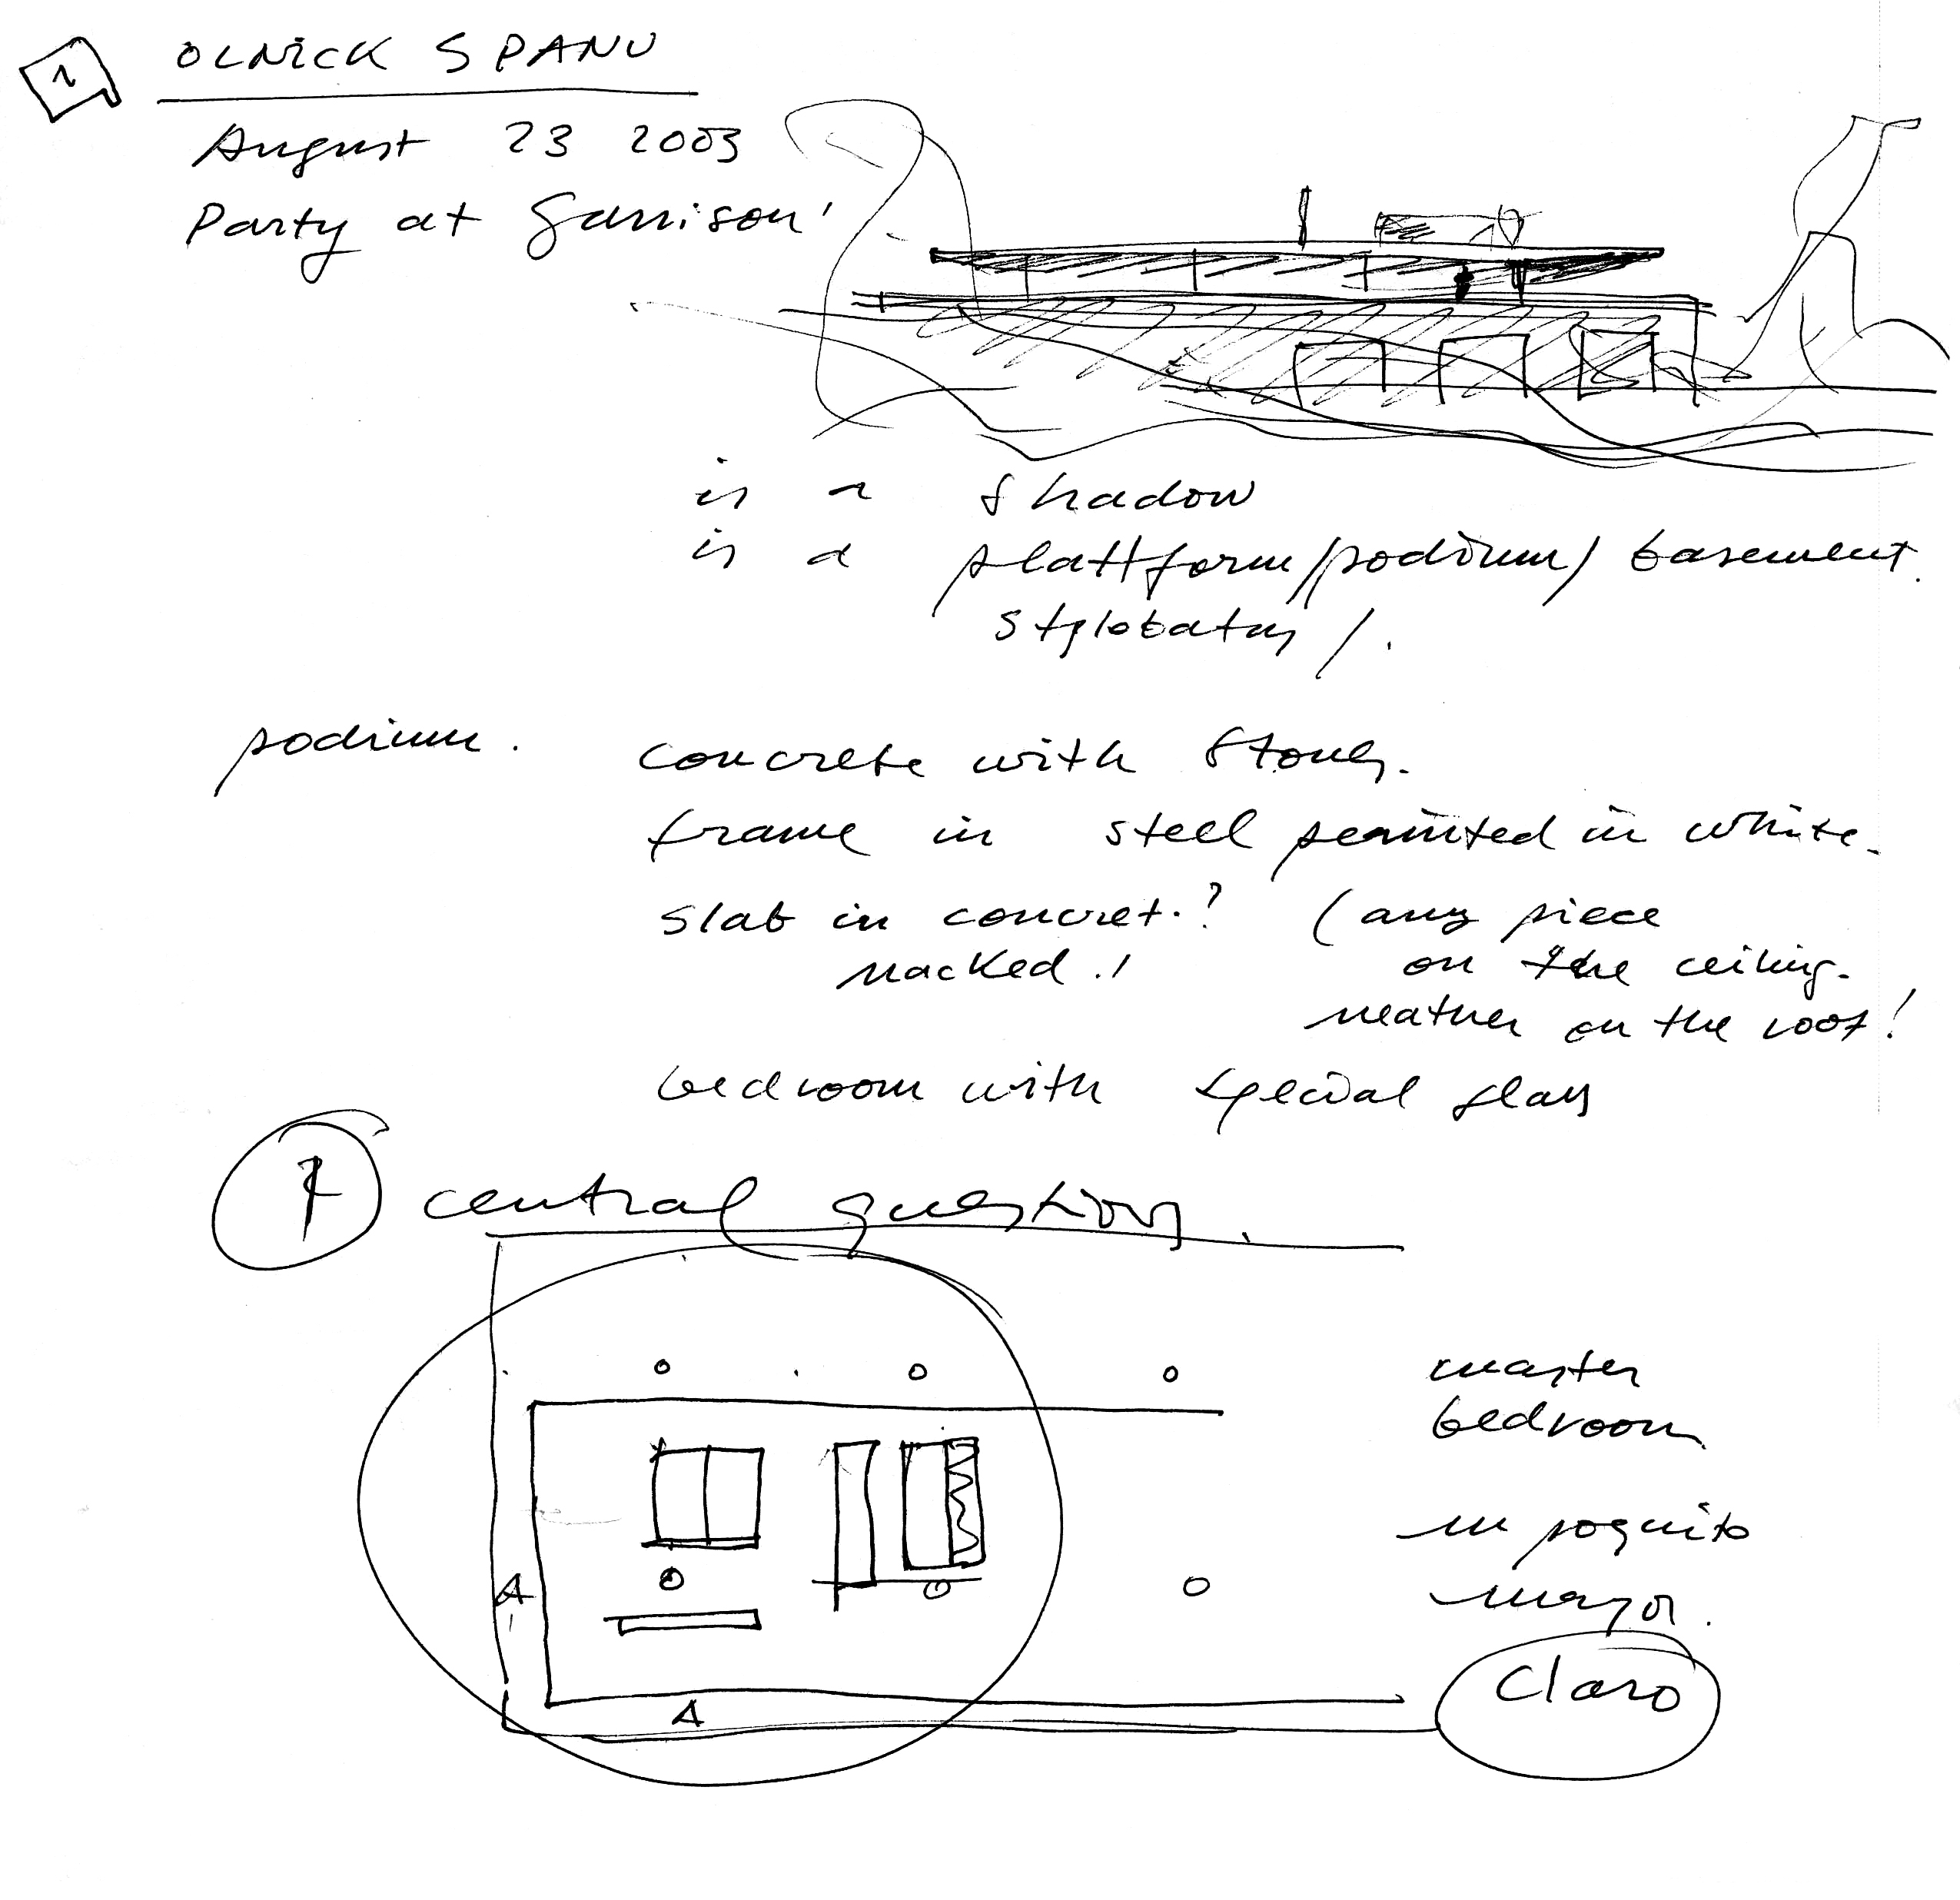 1
OLNICK SPANU
August 23 2003
Party at Garrison!
is a shadow
is a plattform/podium/basement.
stylobatus /.
podium. concrete with stones.
frame in steel painted in white.
slab in concret.? (any piece
nacked.! on the ceiling.
neather on the roof!
bedroom with special glass
central questions.
master
bedroom
un poquito
mayor.
A
A
Claro